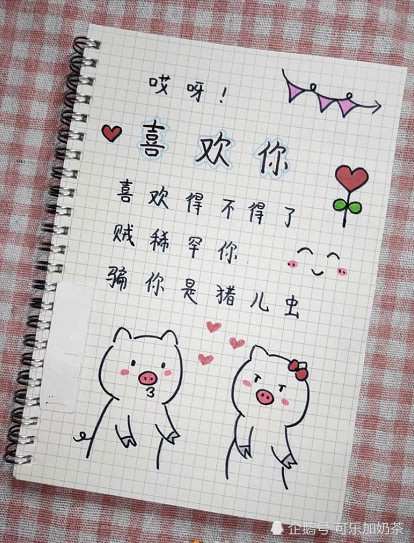 哎呀！
喜欢你
喜欢得不得了
贼稀罕你
骗你是猪儿虫
企鹅号 可乐加奶茶